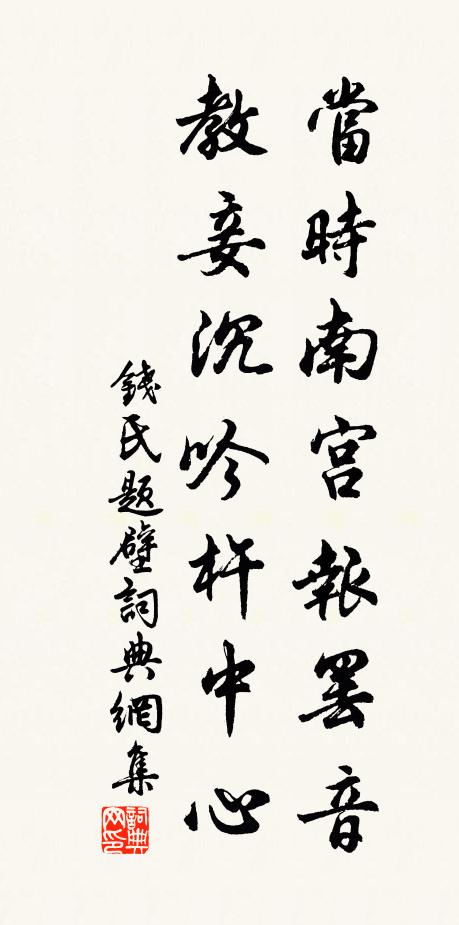 當時南宮報罢音
教妾沉吟杵中心
錢氏題壁詞典網集
詞典
网印